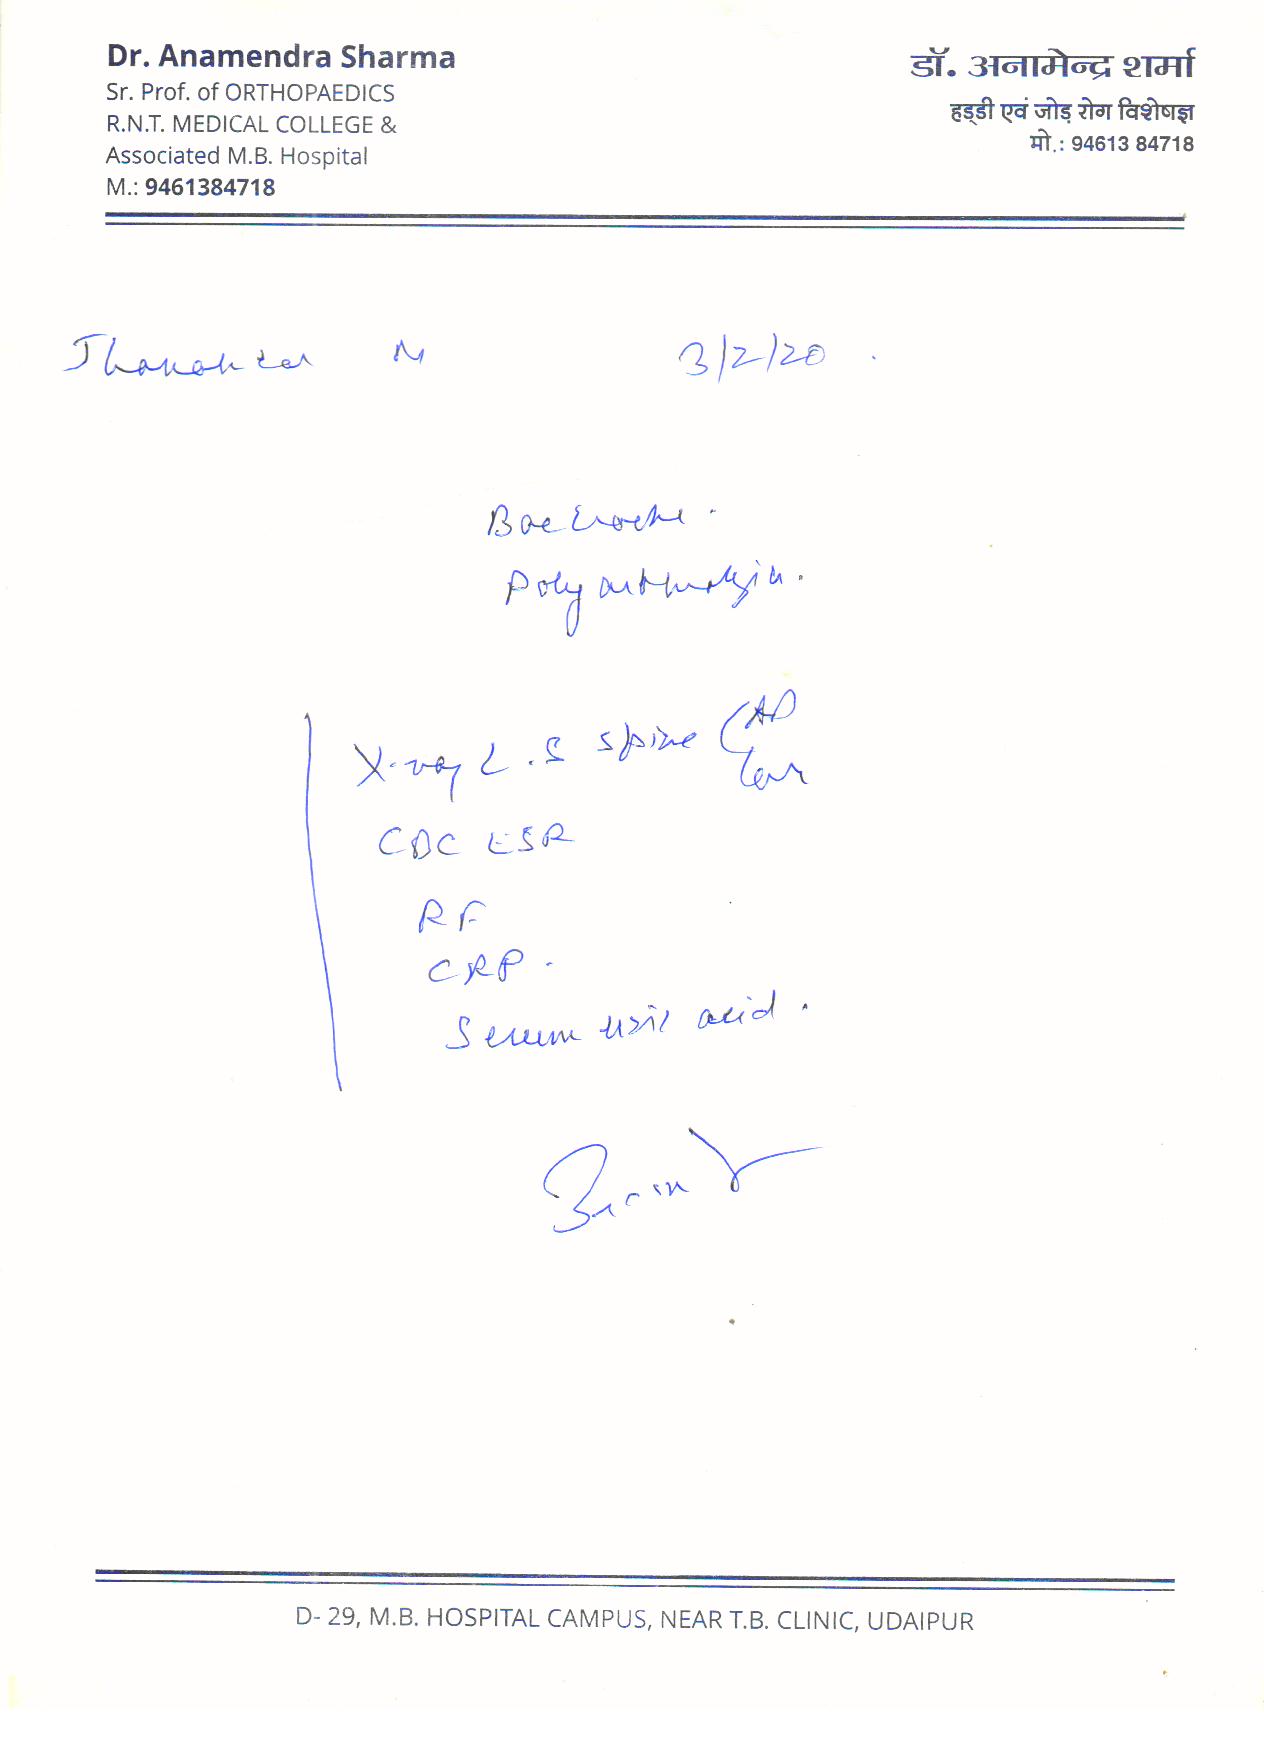 Dr. Anamendra Sharma
Sr. Prof. of ORTHOPAEDICS
R.N.T. MEDICAL COLLEGE &
Associated M.B. Hospital
M.: 9461384718
डॉ. अनामेन्द्र शर्मा
हड्डी एवं जोड़ रोग विशेषज्ञ
मो.: 94613 84718
M 3/2/20
Backache.
Polyarthralgia.
X-ray L.S spine AP
Lat
CBC ESR
RF
CRP.
Serum uric acid.
D- 29, M.B. HOSPITAL CAMPUS, NEAR T.B. CLINIC, UDAIPUR